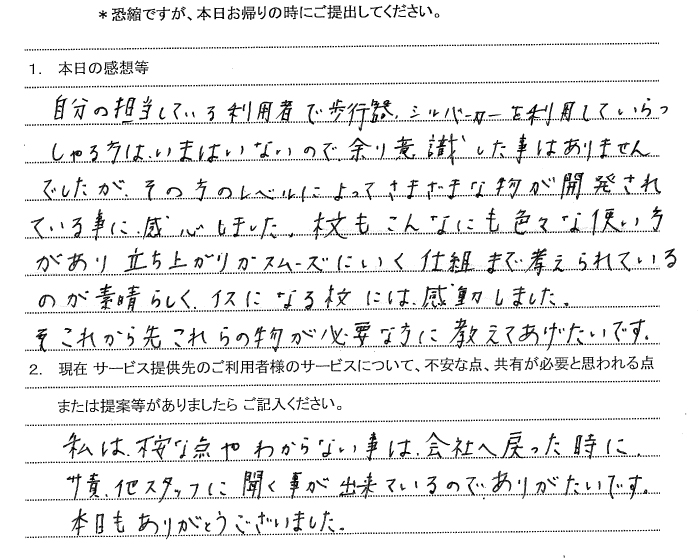 ＊恐縮ですが、本日お帰りの時にご提出してください。
1. 本日の感想等
自分の担当している利用者で歩行器、シルバーカーを利用していらっ
しゃる方は、いまはいないので、余り意識した事はありません
でしたが、その方のレベルによってさまざまな物が開発され
ている事に、感心しました。杖もこんなにも色々な使い方
があり 立ち上がりがスムーズにいく 仕組まで考えられている
のが素晴らしく、イスになる杖には、感動しました。
これから先これらの物が必要な方に教えてあげたいです。
2. 現在 サービス提供先のご利用者様のサービスについて、不安な点、共有が必要と思われる点
または提案等がありましたら ご記入ください。
私は、 な点やわからない事は、会社へ戻った時に、
サ責、他スタッフに聞く事が出来ているので、ありがたいです。
本日もありがとうございました。